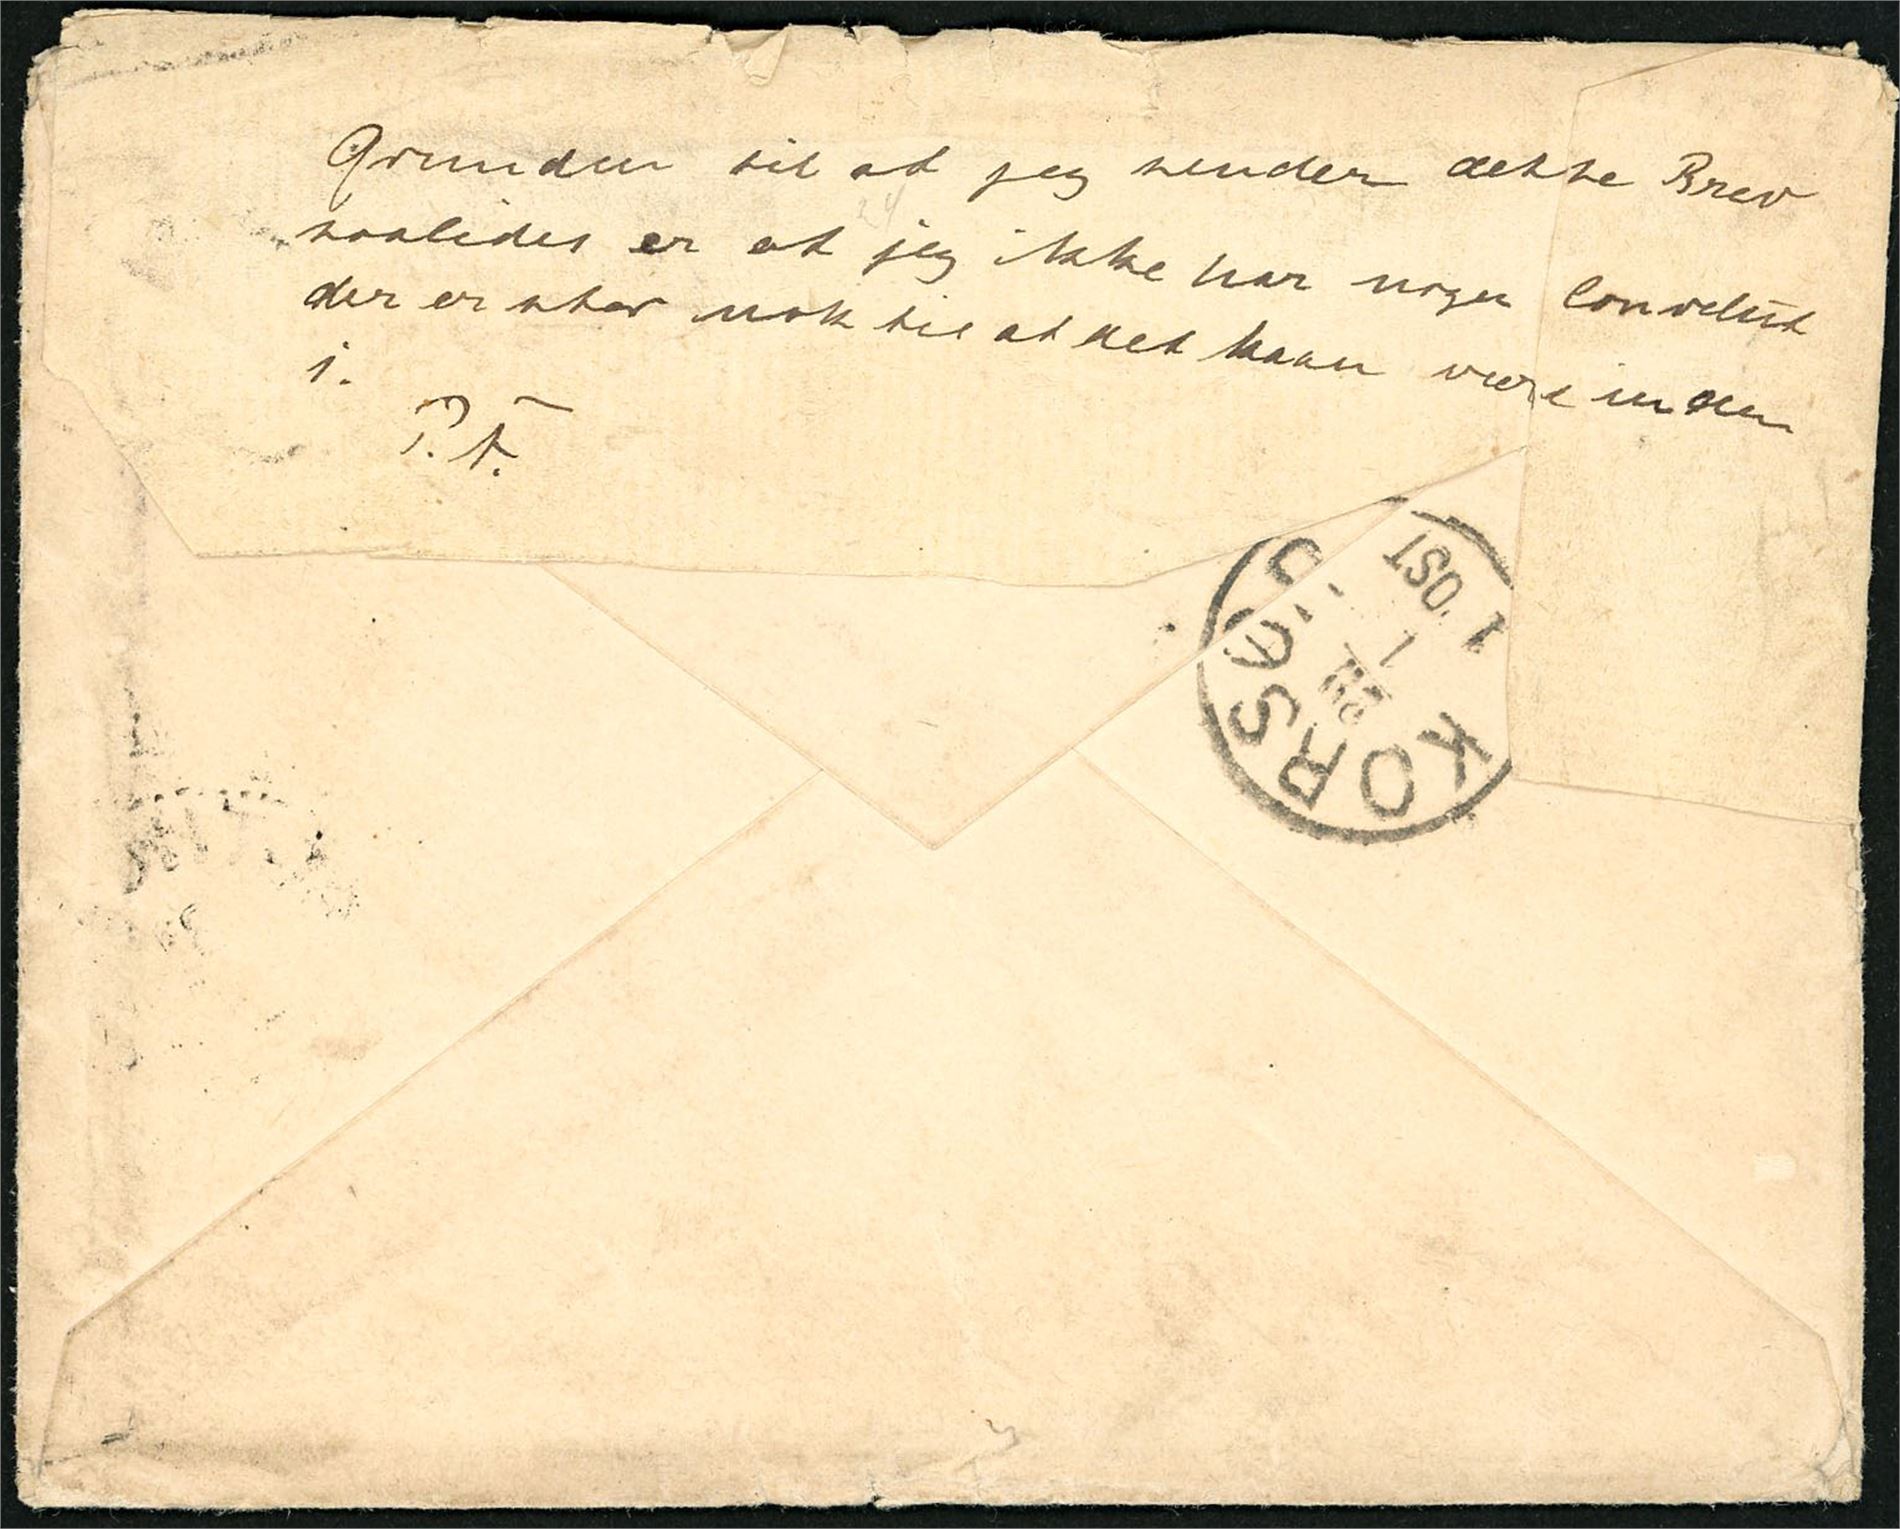 Grunden til at jeg sender dette Brev
saaledes er at jeg ikke har nogen Convolut
der er stor nok til at det kaan være inden
i.
P. F.
KORSØR
1 OST
1